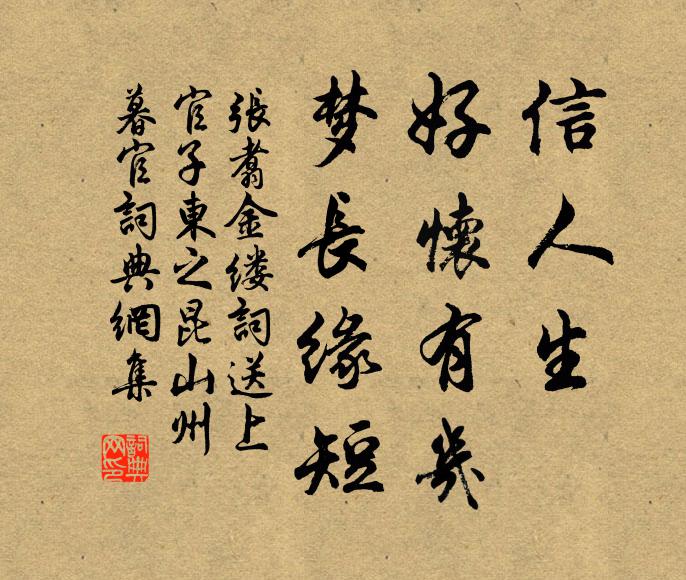 信人生
好懷有幾
梦長緣短
張翥金缕詞送上
官子東之昆山州
暮官詞典網集
詞典
网印